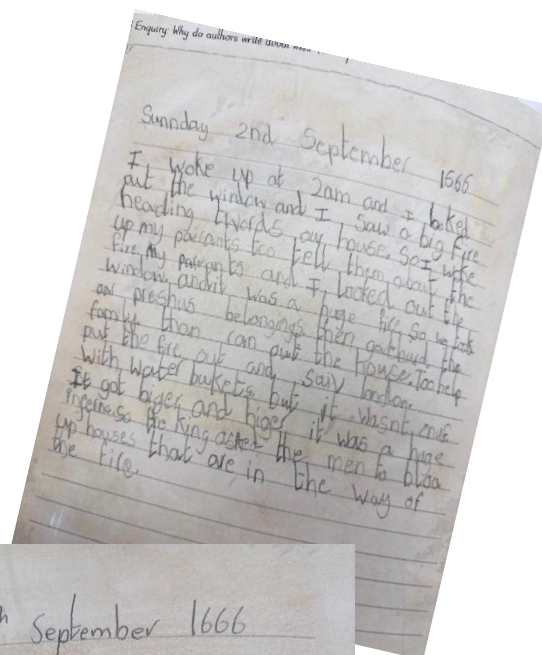 Enquiry: Why do authors write about
Sunnday 2nd September 1666
I woke up at 2am and I looked
out the window and I saw a big fire
heading twords our house. So I woke
up my pairants too tell them about the
fire. My pairants and I looked out the
window, and it was a huge fire. So we took
our preshus belongings then gathurd the
family. than ran out the house. Too help
put the fire out and saiv london.
with water bukets but it wasnt enuf
It got biger and biger it was a huge
inferno. So the King asked the men to bloa
up houses that are in the way of
the fire.
September 1666